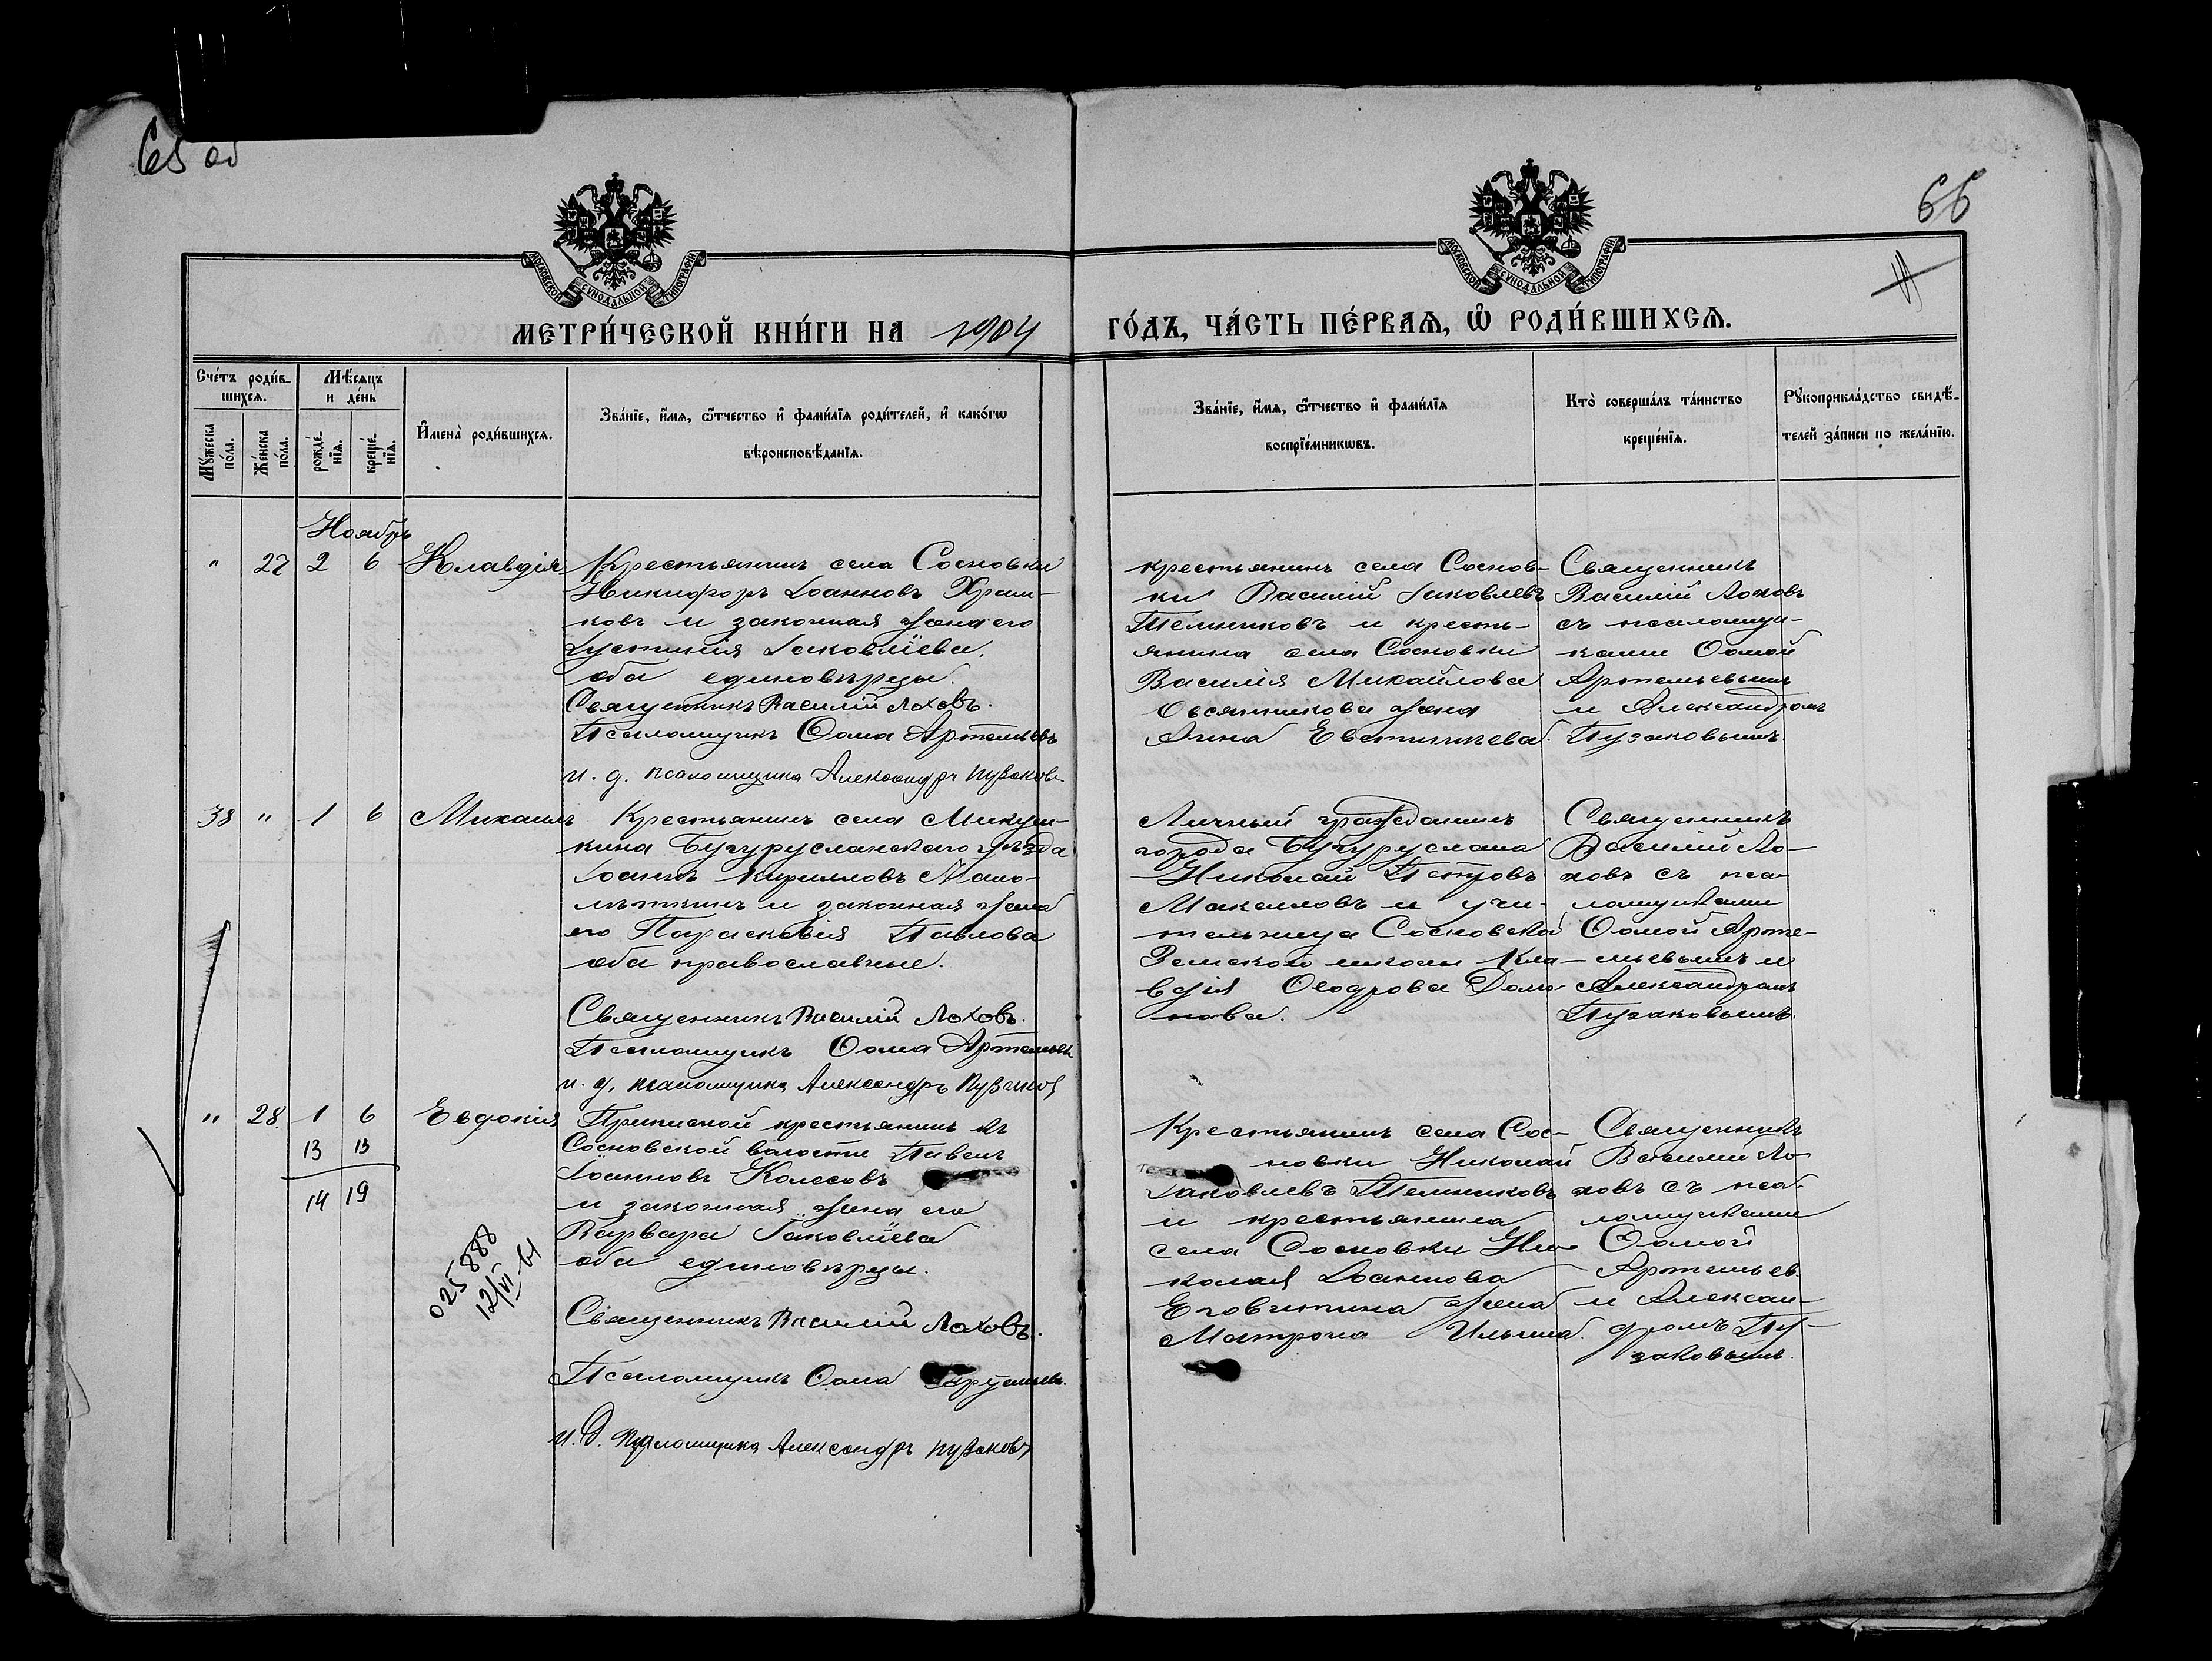 65 об
66
МОСКОВСКОЙ СѴНОДАЛЬНОЙ ТИПОГРАФІИ
МОСКОВСКОЙ СѴНОДАЛЬНОЙ ТИПОГРАФІИ
МЕТРИ́ЧЕСКОЙ КНИ́ГИ НА 1904 ГО́ДЪ, ЧА́СТЬ ПЕ́РВАѦ, Ѡ҆ РОДИ́ВШИХСѦ.
Сче́тъ роди́в-
шихсѧ.
Мѹ́жеска
по́ла.
Же́нска
по́ла.
Мѣ́сѧцъ
и день
рожде́-
нїѧ.
креще́-
нїѧ.
И҆мена̀ роди́вшихсѧ.
Зва́нїе, и҆́мѧ, ѻ҆́тчество и҆ фами́лїѧ роди́телей, и҆ како́гѡ
вѣроисповѣ́данїѧ.
Зва́нїе, и҆́мѧ, ѻ҆́тчество и҆ фами́лїѧ
воспрїе́мникѡвъ.
Кто̀ соверша́лъ та́инство
креще́нїѧ.
Рꙋкоприкла́дство свидѣ́-
телей за́писи по жела́нїю.
Ноябрь
" 27 2 6 Клавдія
Крестьянинъ села Сосновки
Никифоръ Іоанновъ Храм-
ковъ и законная жена его
Іустинія Іаковлева,
оба единовѣрцы.
Священникъ Василій Лоховъ.
Псаломщикъ Ѳома Артемьевъ
и. д. псаломщика Александръ Пузаковъ
крестьянинъ села Соснов-
ки Василій Іаковлевъ
Темниковъ и кресть-
янина села Сосновки
Василія Михайлова
Овсянникова жена
Анна Евстигнѣева.
Священникъ
Василій Лоховъ
съ псаломщи-
ками Ѳомой
Артемьевымъ
и Александромъ
Пузаковымъ.
38 " 1 6 Михаилъ
Крестьянинъ села Микуш-
кина Бугурусланскаго уѣзда
Іоаннъ Кирилловъ Мало-
лѣткинъ и законная жена
его Параскевія Павлова
оба православные.
Священникъ Василій Лоховъ.
Псаломщикъ Ѳома Артемьевъ
и. д. псаломщика Александръ Пузаковъ
Личный гражданинъ
города Бугуруслана
Николай Петровъ
Макелловъ и учи-
тельница Сосновской
Земской школы Кла-
вдія Ѳеодрова Домо-
нова.
Священникъ
Василій Ло-
ховъ съ пса-
ломщиками
Ѳомой Арте-
мьевымъ и
Александромъ
Пузаковымъ.
" 28. 1 6 Евдокія
13 13
14 19
025888
12/VI 61
Приписной крестьянинъ къ
Сосновской волости Павелъ
Іоанновъ Колесовъ
и законная жена его
Варвара Іаковлева
оба единовѣрцы.
Священникъ Василій Лоховъ.
Псаломщикъ Ѳома Артемьевъ.
и. д. псаломщика Александръ Пузаковъ
Крестьянинъ села Сос-
новки Николай
Іаковлевъ Темниковъ
и крестьянина
села Сосновки Ни-
колая Іоаннова
Еговитина жена
Матрона Ильина.
Священникъ
Василій Ло-
ховъ съ пса-
ломщиками
Ѳомой
Артемьев.
и Алексан-
дромъ Пу-
заковымъ.